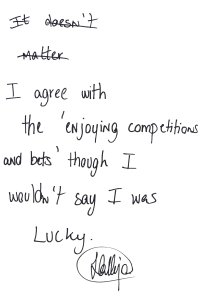 It doesn't
matter
I agree with
the 'enjoying competitions
and bets' though I
wouldn't say I was
Lucky.